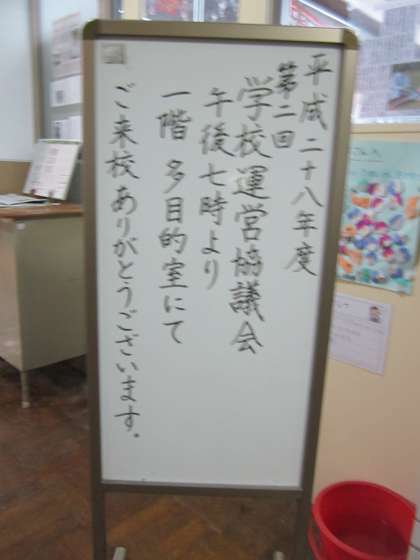 平成二十八年度
第二回
学校運営協議会
午後七時より
一階 多目的室にて
ご来校ありがとうございます.